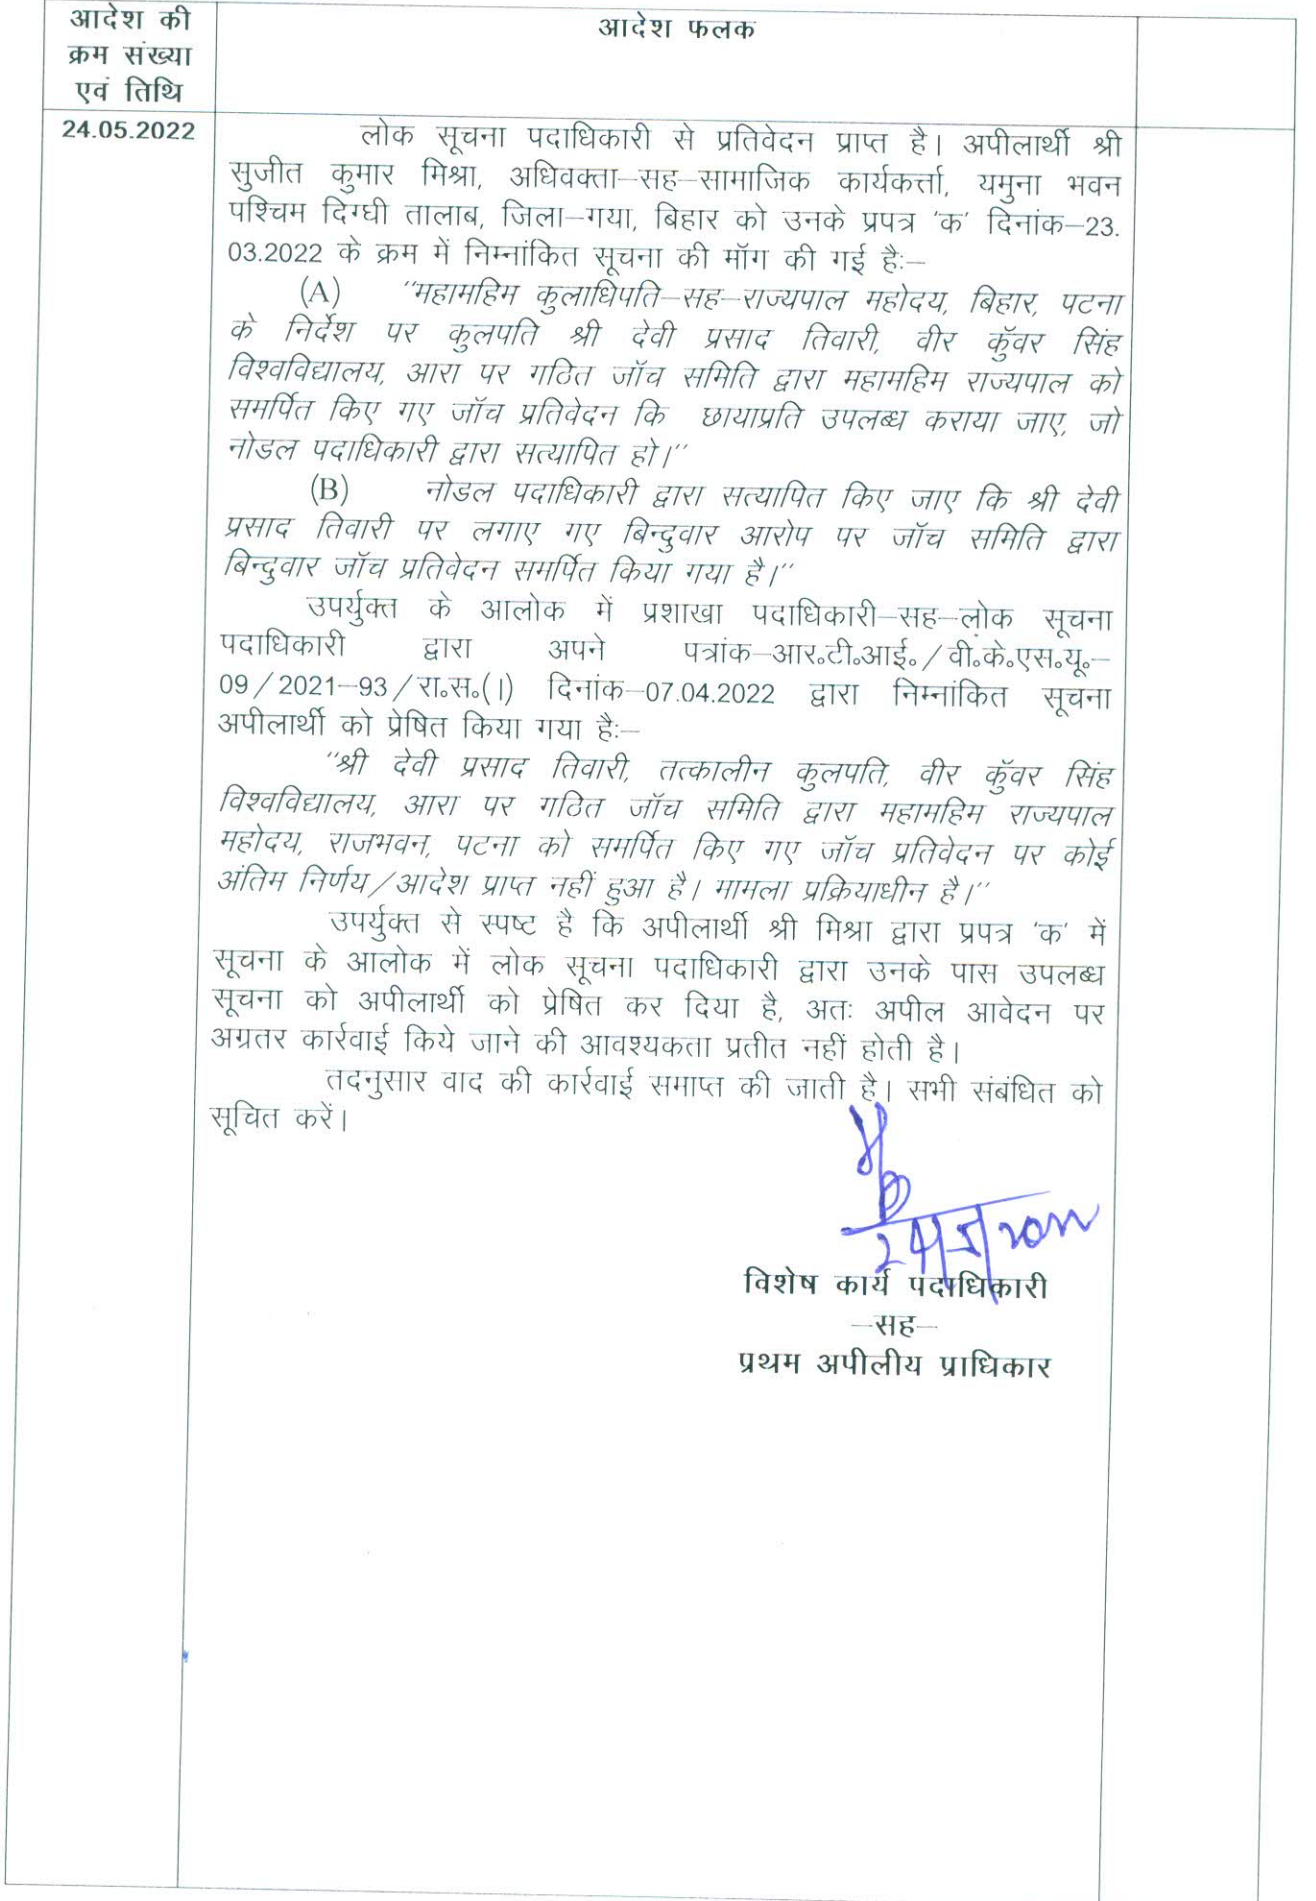 आदेश की
क्रम संख्या
एवं तिथि
आदेश फलक
24.05.2022
लोक सूचना पदाधिकारी से प्रतिवेदन प्राप्त है। अपीलार्थी श्री
सुजीत कुमार मिश्रा, अधिवक्ता–सह–सामाजिक कार्यकर्त्ता, यमुना भवन
पश्चिम दिग्घी तालाब, जिला–गया, बिहार को उनके प्रपत्र 'क' दिनांक–23.
03.2022 के क्रम में निम्नांकित सूचना की मॉग की गई हैः–
(A) ''महामहिम कुलाधिपति–सह–राज्यपाल महोदय, बिहार, पटना
के निर्देश पर कुलपति श्री देवी प्रसाद तिवारी, वीर कुॅवर सिंह
विश्वविद्यालय, आरा पर गठित जॉच समिति द्वारा महामहिम राज्यपाल को
समर्पित किए गए जॉच प्रतिवेदन कि छायाप्रति उपलब्ध कराया जाए, जो
नोडल पदाधिकारी द्वारा सत्यापित हो।''
(B) नोडल पदाधिकारी द्वारा सत्यापित किए जाए कि श्री देवी
प्रसाद तिवारी पर लगाए गए बिन्दुवार आरोप पर जॉच समिति द्वारा
बिन्दुवार जॉच प्रतिवेदन समर्पित किया गया है।''
उपर्युक्त के आलोक में प्रशाखा पदाधिकारी–सह–लोक सूचना
पदाधिकारी द्वारा अपने पत्रांक–आर०टी०आई०/वी०के०एस०यू०–
09/2021–93/रा०स०(।) दिनांक–07.04.2022 द्वारा निम्नांकित सूचना
अपीलार्थी को प्रेषित किया गया हैः–
''श्री देवी प्रसाद तिवारी, तत्कालीन कुलपति, वीर कुॅवर सिंह
विश्वविद्यालय, आरा पर गठित जॉच समिति द्वारा महामहिम राज्यपाल
महोदय, राजभवन, पटना को समर्पित किए गए जॉच प्रतिवेदन पर कोई
अंतिम निर्णय/आदेश प्राप्त नहीं हुआ है। मामला प्रक्रियाधीन है।''
उपर्युक्त से स्पष्ट है कि अपीलार्थी श्री मिश्रा द्वारा प्रपत्र 'क' में
सूचना के आलोक में लोक सूचना पदाधिकारी द्वारा उनके पास उपलब्ध
सूचना को अपीलार्थी को प्रेषित कर दिया है, अतः अपील आवेदन पर
अग्रतर कार्रवाई किये जाने की आवश्यकता प्रतीत नहीं होती है।
तदनुसार वाद की कार्रवाई समाप्त की जाती है। सभी संबंधित को
सूचित करें।
24/5/2022
विशेष कार्य पदाधिकारी
–सह–
प्रथम अपीलीय प्राधिकार